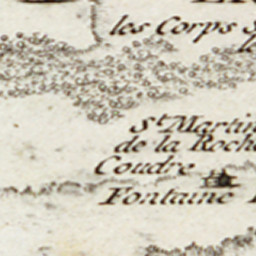 les Corps S
le
St. Martin
de la Roche
Coudre
Fontaine